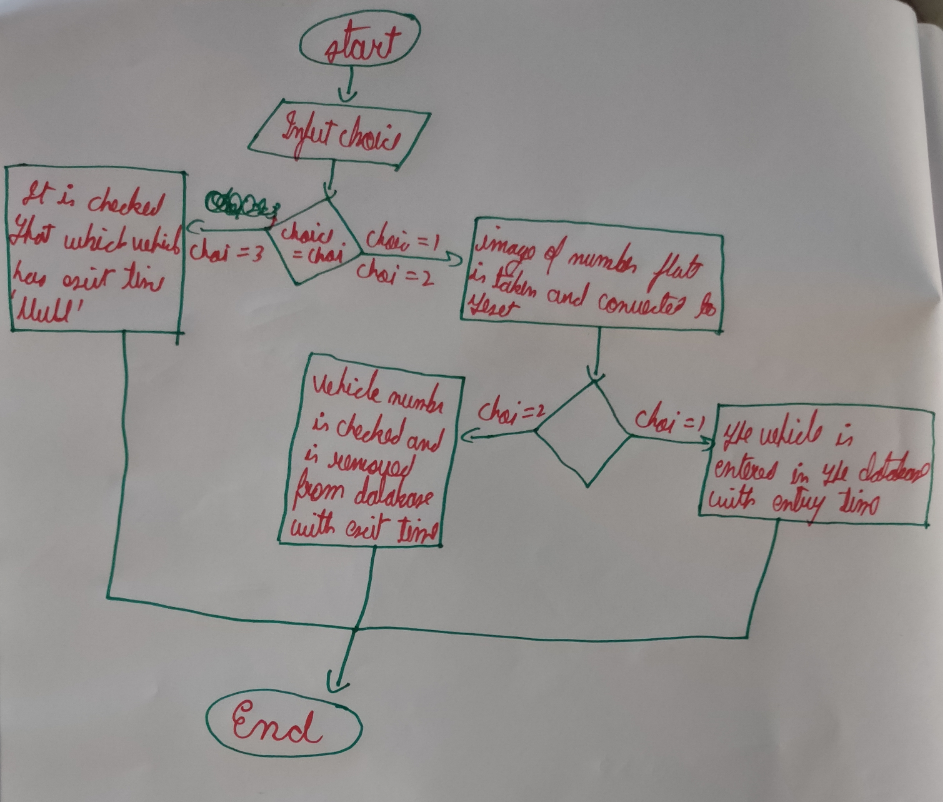 start
Input choice
It is checked
that which vehicle
has exit time
'Null'
choice
= choi
choi = 3
choice = 1
choi = 2
image of number plate
is taken and converted to
text
vehicle number
is checked and
is removed
from database
with exit time
choi = 2
choi = 1
the vehicle is
entered in the database
with entry time
End